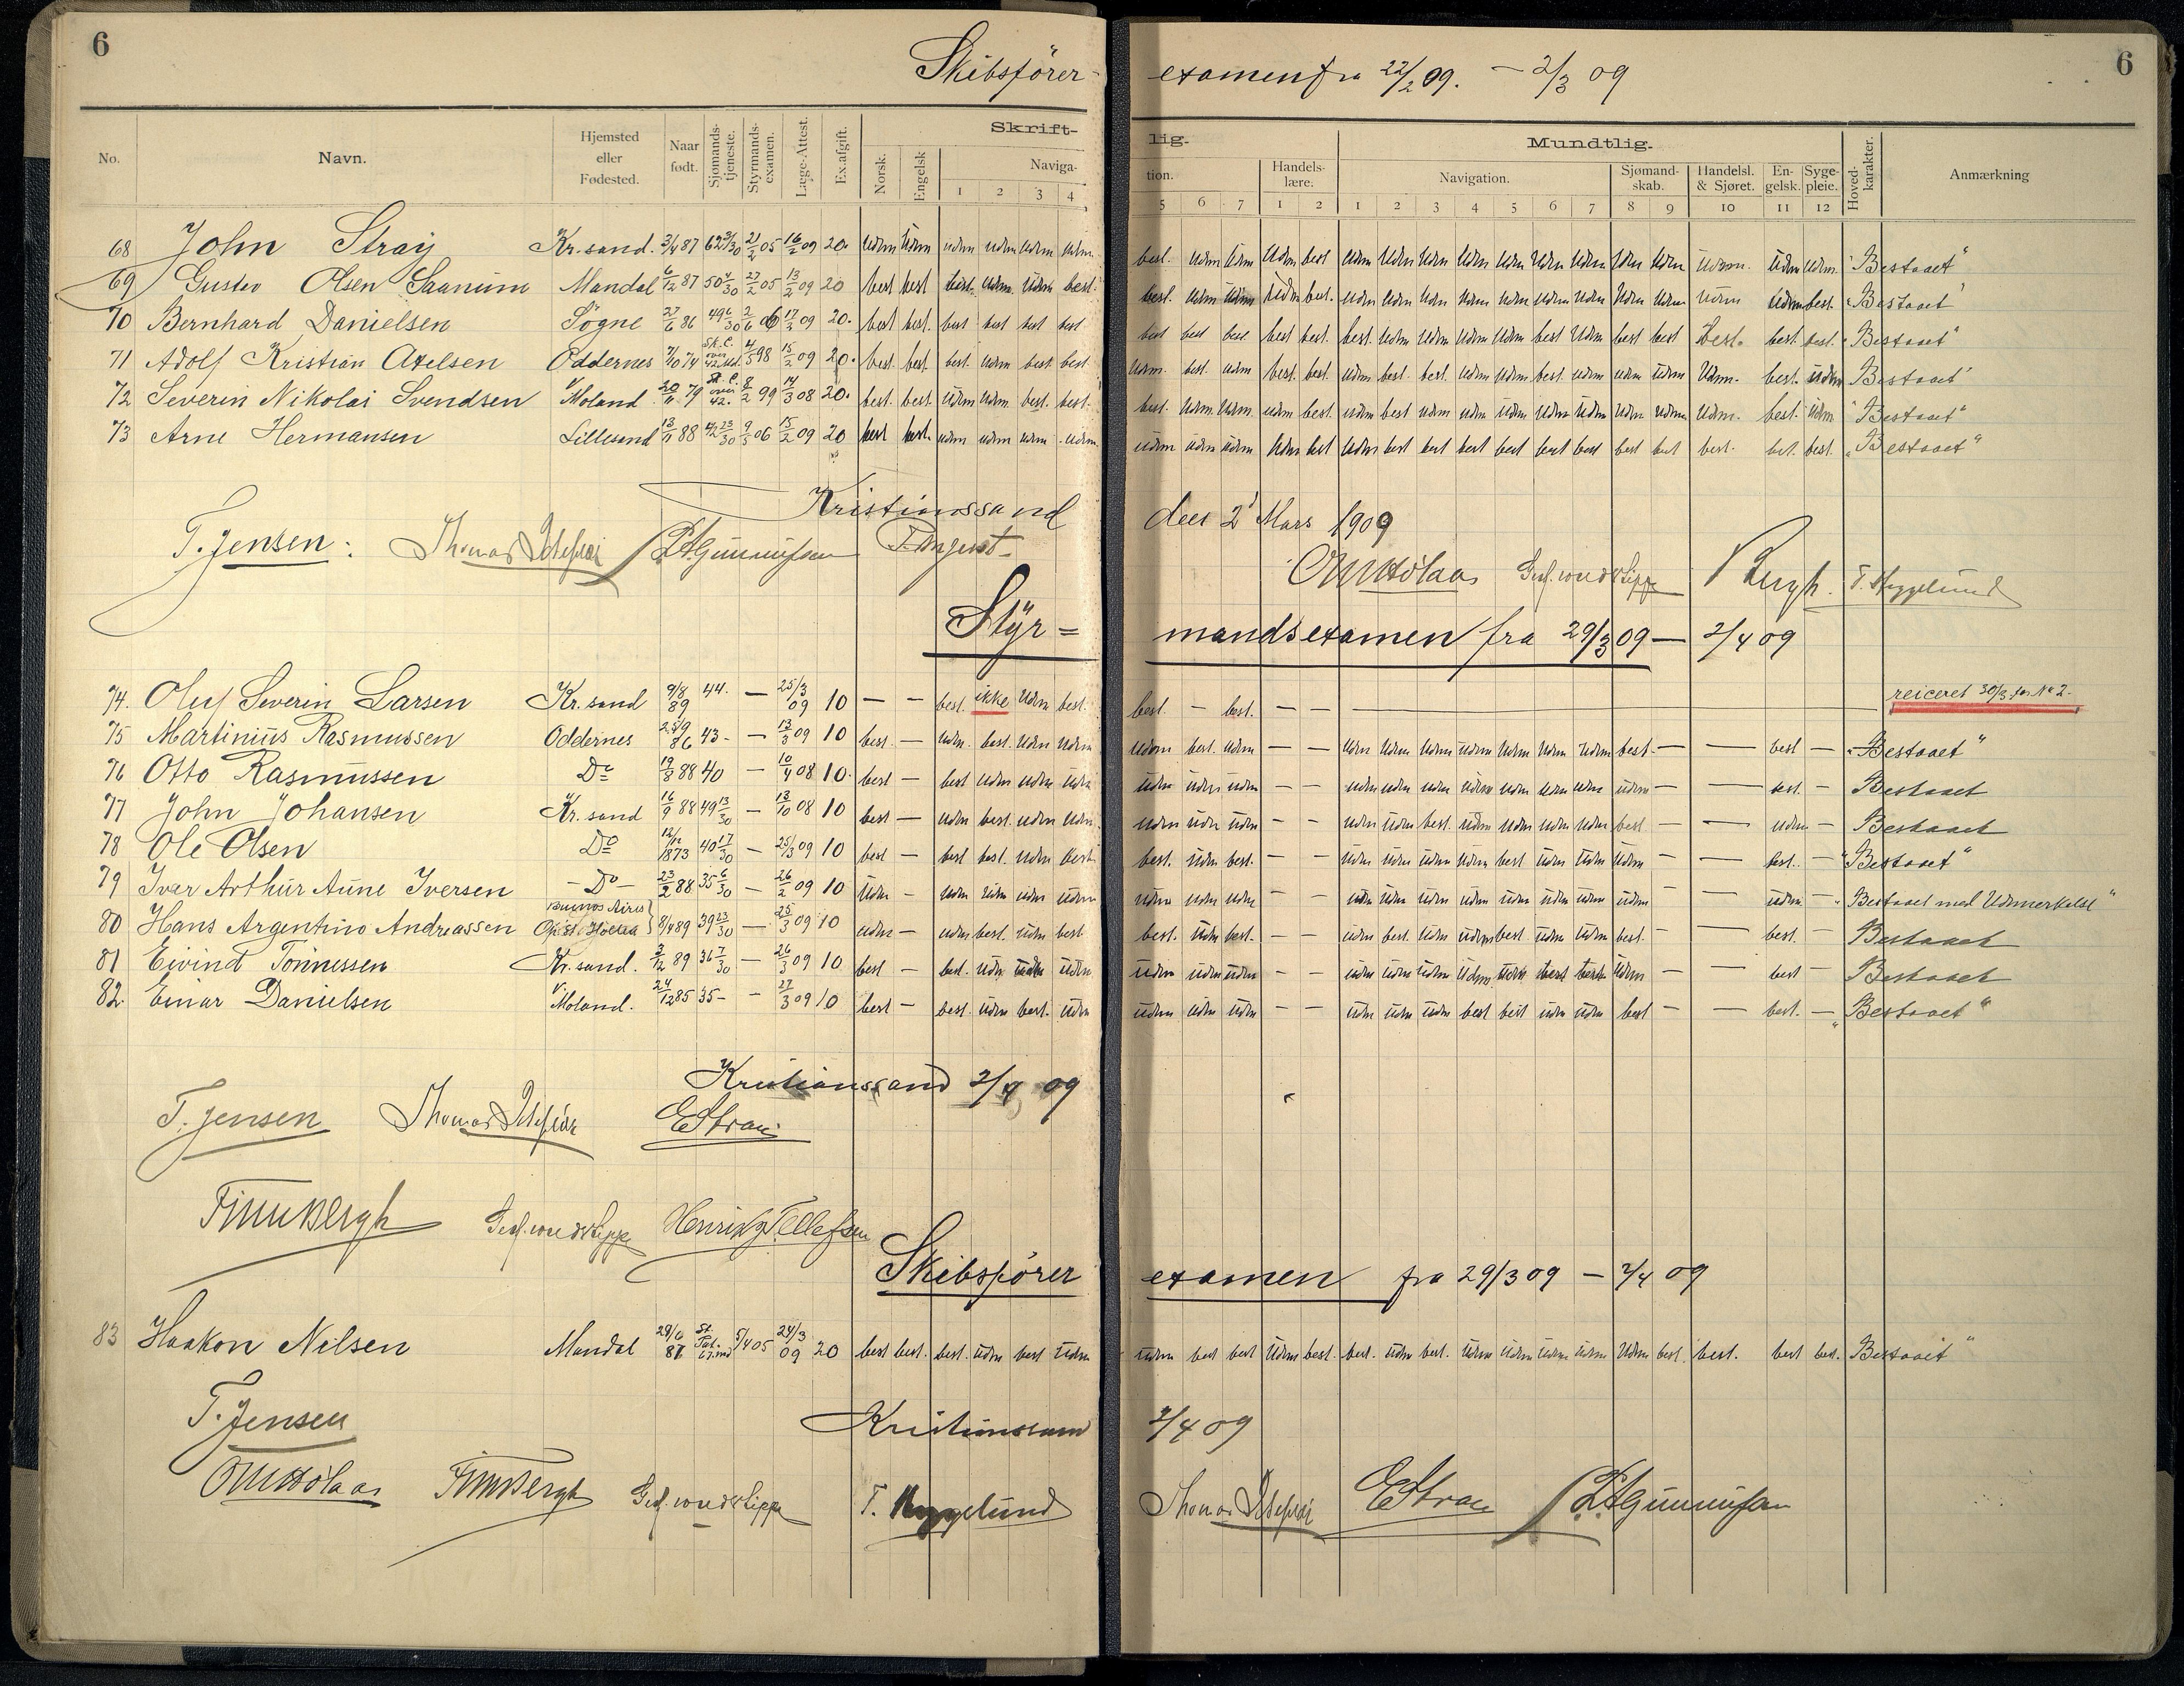 6
Skibsfører-
examen fra 22/2 09. — 2/3 09
6
No. Navn. Hjemsted eller Fødested. Naar født. Sjømandstjeneste. Styrmandsexamen. Læge-Attest. Ex.afgift. Norsk. Engelsk Skrift- Naviga- 1 2 3 4
lig. tion. 5 6 7 Handelslære. 1 2 Mundtlig. Navigation. 1 2 3 4 5 6 7 Sjømandskab. 8 9 Handelsl. & Sjøret. 10 Engelsk. 11 Sygepleie. 12 Hovedkarakter. Anmærkning
68 John Stray Kr.sand. 3/4 87 21/2 05 16/2 09 20. udm udm udm udm udm udm best. udm udm udm best udm udm udm udm udm udm udm udm udm udm. udm udm. "Bestaaet"
69 Gustav Olsen Saanum Mandal 6/12 87 50 4/30 27/2 05 13/2 09 20 best best best. udm. udm best. best. udm udm udm best. udm udm udm udm udm udm udm udm udm udm udm best. "Bestaaet"
70 Bernhard Danielsen Søgne 27/6 86 49 6/30 2/6 06 17/2 09 20. best best. best best best best best best best best best. best. udm udm udm udm best udm best best best. best. best. "Bestaaet"
71 Adolf Kristian Axelsen Oddernes 7/10 74 4/5 98 15/2 09 20. best. best. best. udm best. best udm. best. udm best. best. udm best. best. udm udm best. udm udm udm udm. best. udm "Bestaaet"
72 Severin Nikolai Svendsen V. Moland 20/11 79 8/2 99 14/3 08 20. best. best. udm udm. best. best. best. udm. udm. udm best. udm best udm udm udm udm udm udm udm udm. best. udm "Bestaaet"
73 Arne Hermansen Lillesand 13/11 88 42 23/30 9/5 06 15/2 09 20 best best. udm udm udm udm udm udm udm udm best udm best best best best best best best best best. best. best. "Bestaaet"
Kristianssand
den 2' Mars 1909
T. Jensen.
Styr=
mandsexamen fra 29/3 09 — 2/4 09
74. Oluf Severin Larsen Kr.sand 9/8 89 44. — 25/3 09 10 — — best. ikke udm best. best. — best. — — reiceret 30/3 for No 2.
75 Martinius Rasmussen Oddernes 25/9 86 43 - — 13/3 09 10 best. — udm. best. udm udm udm best. udm — — udm udm udm udm udm udm udm best. — — best — "Bestaaet"
76 Otto Rasmussen Do 19/3 88 40 — 10/4 08 10. best — best udm udm udm udm udm udm — — udm udm udm udm udm udm udm udm — — best. — Bestaaet
77 John Johansen Kr.sand 16/9 88 49 13/30 — 13/10 08 10 best — udm best. udm udm. udm udm udm — — udm udm best. udm udm udm udm best — — udm — Bestaaet
78 Ole Olsen Do 12/12 1873 40 17/30 — 25/3 09 10 best — best best. udm best best. udm best. — — udm udm udm udm best udm udm udm — — best. — "Bestaaet"
79 Ivar Arthur Aune Iversen - Do - 23/2 88 35 6/30 — 26/2 09 10 udm — udm udm udm udm udm udm udm — — udm udm udm udm udm udm udm udm — — udm — "Bestaaet med Udmerkelse"
80 Hans Argentino Andreassen Buenos Aires 8/4 89 39 23/30 — 25/3 09 10 udm — udm best. udm best best. udm best. — — udm best. udm udm best. udm udm best. — — best. — Bestaaet
81 Eivind Tønnessen Kr.sand. 3/12 89 36 7/30 — 26/3 09 10 best — best. udm udm udm udm udm udm — — udm udm udm udm best best udm — — best — Bestaaet
82 Einar Danielsen V. Moland. 24/12 85 35 - — 27/3 09 10 best — best. udm best. udm udm udm udm — — udm udm udm best best udm udm best — — best. — "Bestaaet"
Kristianssand 2/4 09
T. Jensen
Finn Bergh Henrik Tellefsen
Skibsfører
examen fra 29/3 09 — 2/4 09
83 Haakon Nilsen Mandal 29/6 5/4 05 24/3 09 20 best best. best. udm best udm udm best best udm best. best. udm best. udm udm udm udm udm best. best. best best. Bestaaet"
T. Jensen
Kristianssand
2/4 09
Finn Bergh T. Hyggelund